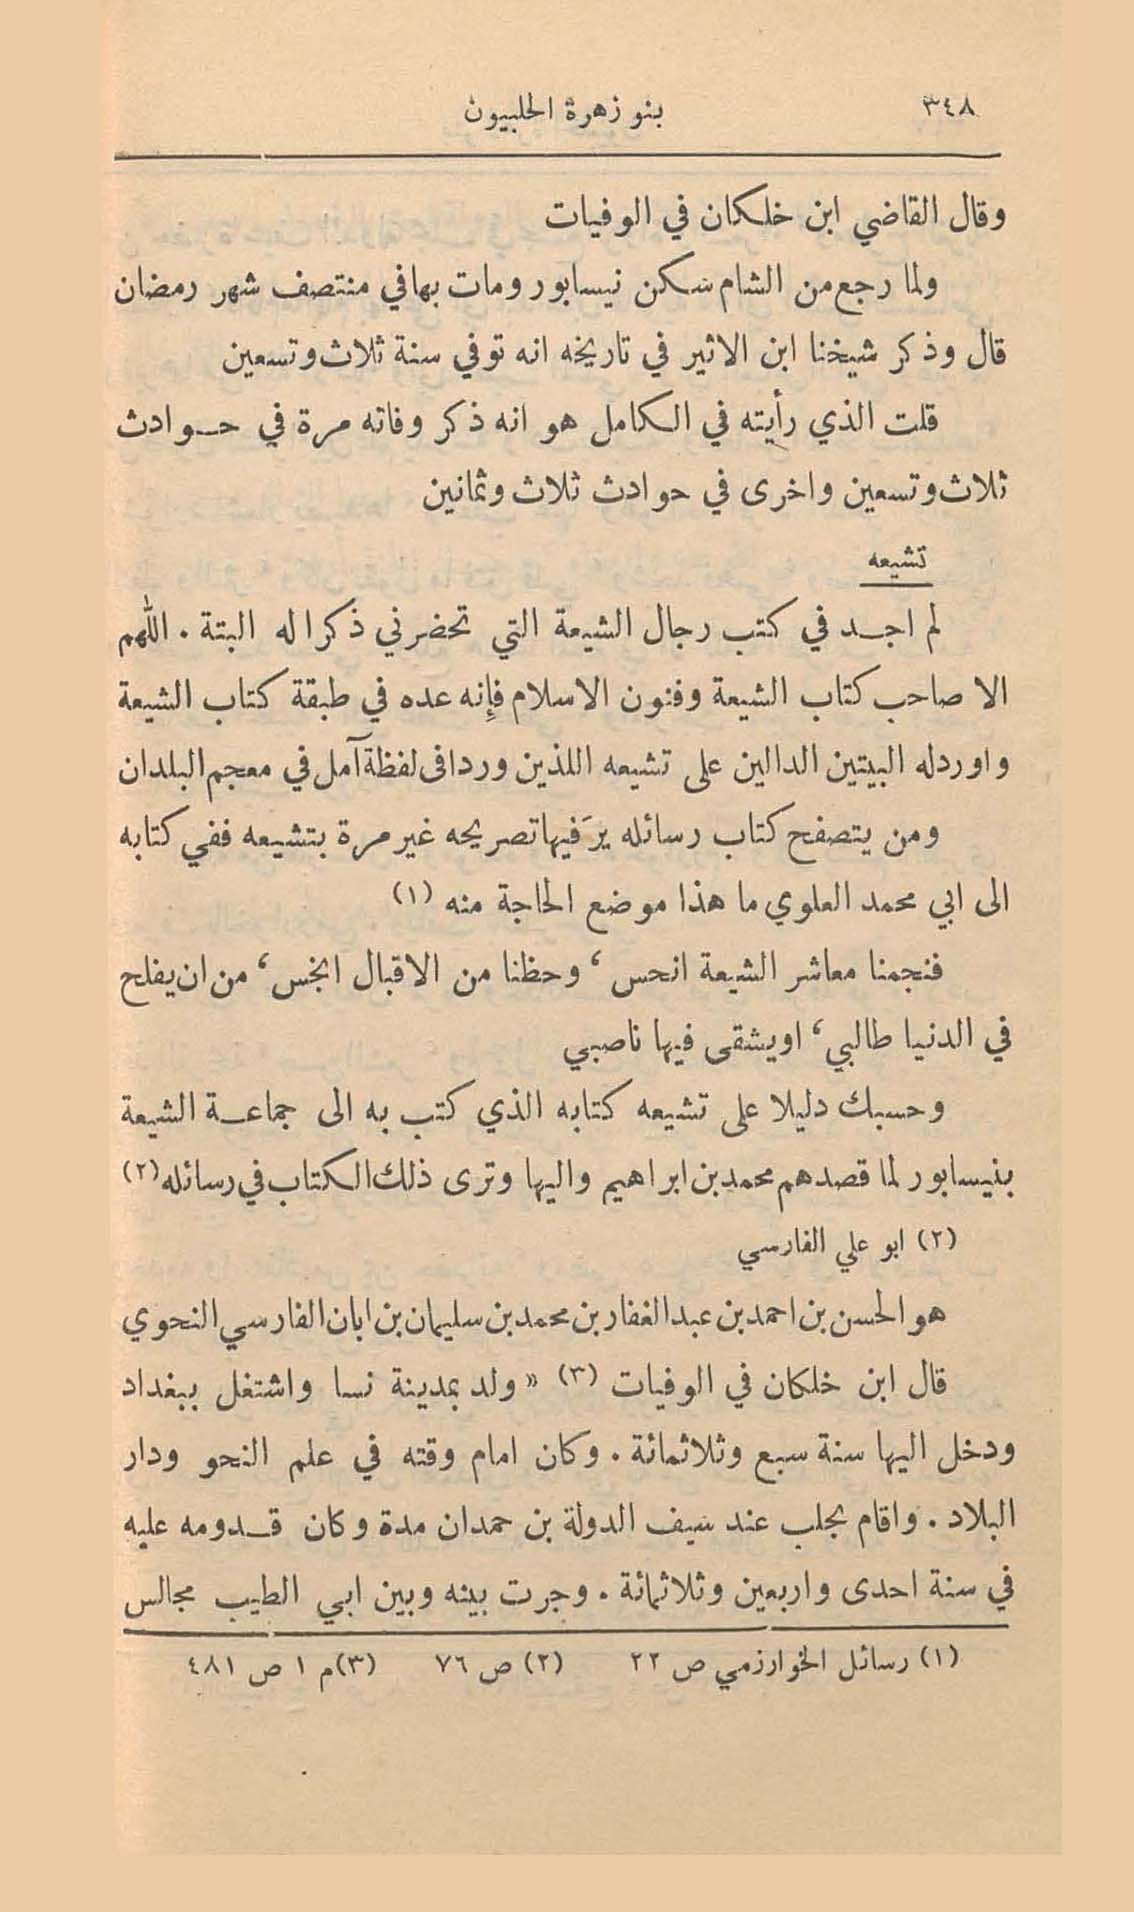 ٣٤٨
بنو زهرة الحلبيون
وقال القاضي ابن خلكان في الوفيات
ولما رجع من الشام سكن نيسابور ومات بها في منتصف شهر رمضان
قال وذكر شيخنا ابن الاثير في تاريخه انه توفي سنة ثلاث وتسعين
قلت الذي رأيته في الكامل هو انه ذكر وفاته مرة في حوادث
ثلاث وتسعين واخرى في حوادث ثلاث وثمانين
تشيعه
لم اجد في كتب رجال الشيعة التي تحضرني ذكرا له البتة . اللهم
الا صاحب كتاب الشيعة وفنون الاسلام فإنه عده في طبقة كتاب الشيعة
واورد له البيتين الدالين على تشيعه اللذين وردا في لفظة آمل في معجم البلدان
ومن يتصفح كتاب رسائله يرَ فيها تصريحه غير مرة بتشيعه ففي كتابه
الى ابي محمد العلوي ما هذا موضع الحاجة منه (١)
فنجمنا معاشر الشيعة انحس ، وحظنا من الاقبال ابخس ، من ان يفلح
في الدنيا طالبي ، او يشقى فيها ناصبي
وحسبك دليلا على تشيعه كتابه الذي كتب به الى جماعة الشيعة
بنيسابور لما قصدهم محمد بن ابراهيم واليها وترى ذلك الكتاب في رسائله (٢)
(٢) ابو علي الفارسي
هو الحسن بن احمد بن عبد الغفار بن محمد بن سليمان بن ابان الفارسي النحوي
قال ابن خلكان في الوفيات (٣) « ولد بمدينة نسا واشتغل ببغداد
ودخل اليها سنة سبع وثلاثمائة . وكان امام وقته في علم النحو ودار
البلاد . واقام بحلب عند سيف الدولة بن حمدان مدة وكان قدومه عليه
في سنة احدى واربعين وثلاثمائة . وجرت بينه وبين ابي الطيب مجالس
(١) رسائل الخوارزمي ص ٢٢ (٢) ص ٧٦ (٣) م ١ ص ٤٨١